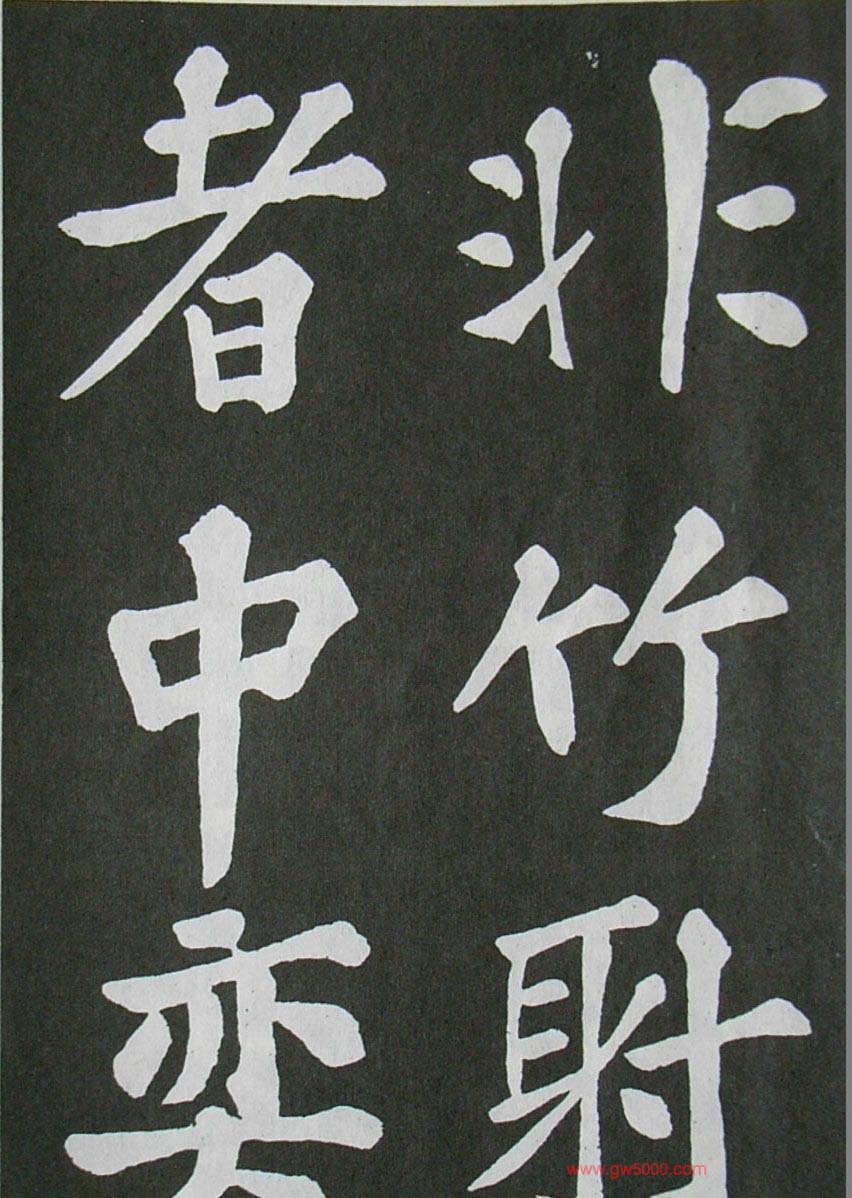 非竹射
者中奕
www.gw5000.com